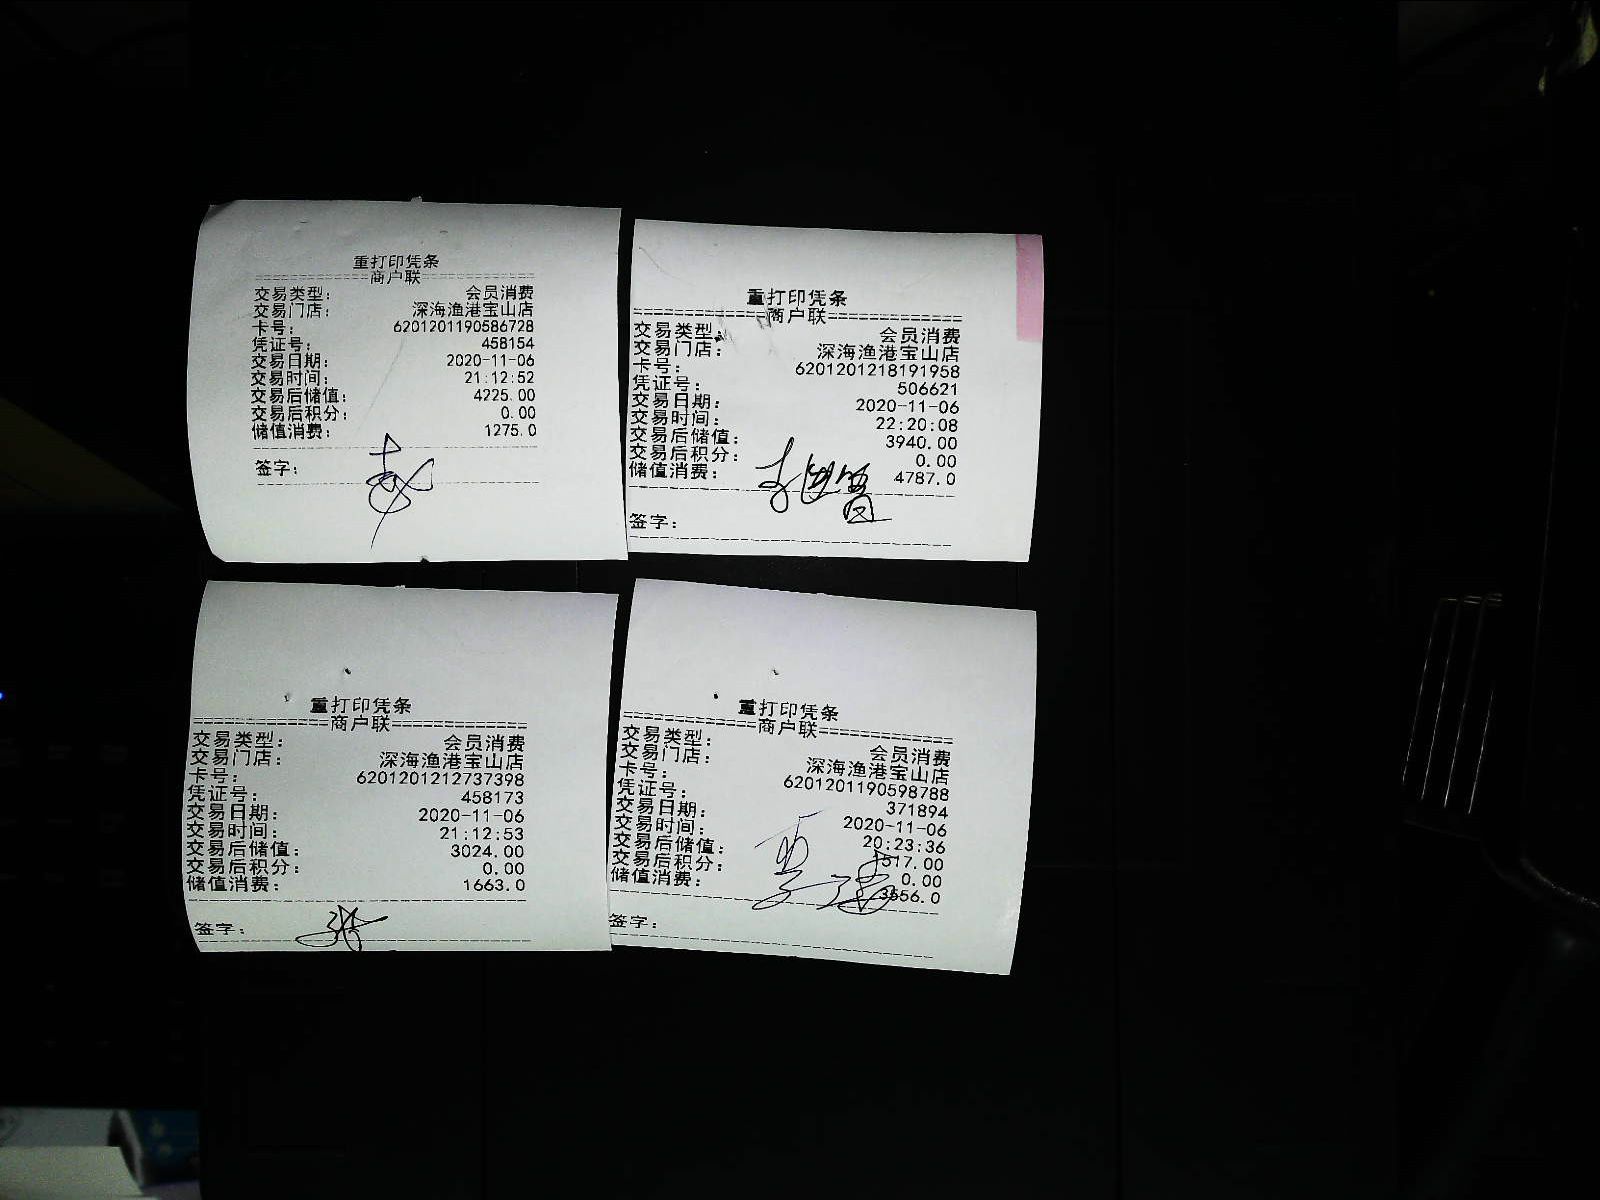 重打印凭条
================商户联================
交易类型: 会员消费
交易门店: 深海渔港宝山店
卡号: 6201201190586728
凭证号: 458154
交易日期: 2020-11-06
交易时间: 21:12:52
交易后储值: 4225.00
交易后积分: 0.00
储值消费: 1275.0
签字:
重打印凭条
================商户联================
交易类型: 会员消费
交易门店: 深海渔港宝山店
卡号: 6201201218191958
凭证号: 506621
交易日期: 2020-11-06
交易时间: 22:20:08
交易后储值: 3940.00
交易后积分: 0.00
储值消费: 4787.0
签字:
重打印凭条
================商户联================
交易类型: 会员消费
交易门店: 深海渔港宝山店
卡号: 6201201212737398
凭证号: 458173
交易日期: 2020-11-06
交易时间: 21:12:53
交易后储值: 3024.00
交易后积分: 0.00
储值消费: 1663.0
签字:
重打印凭条
================商户联================
交易类型: 会员消费
交易门店: 深海渔港宝山店
卡号: 6201201190598788
凭证号: 371894
交易日期: 2020-11-06
交易时间: 20:23:36
交易后储值: 1517.00
交易后积分: 0.00
储值消费: 3556.0
签字: